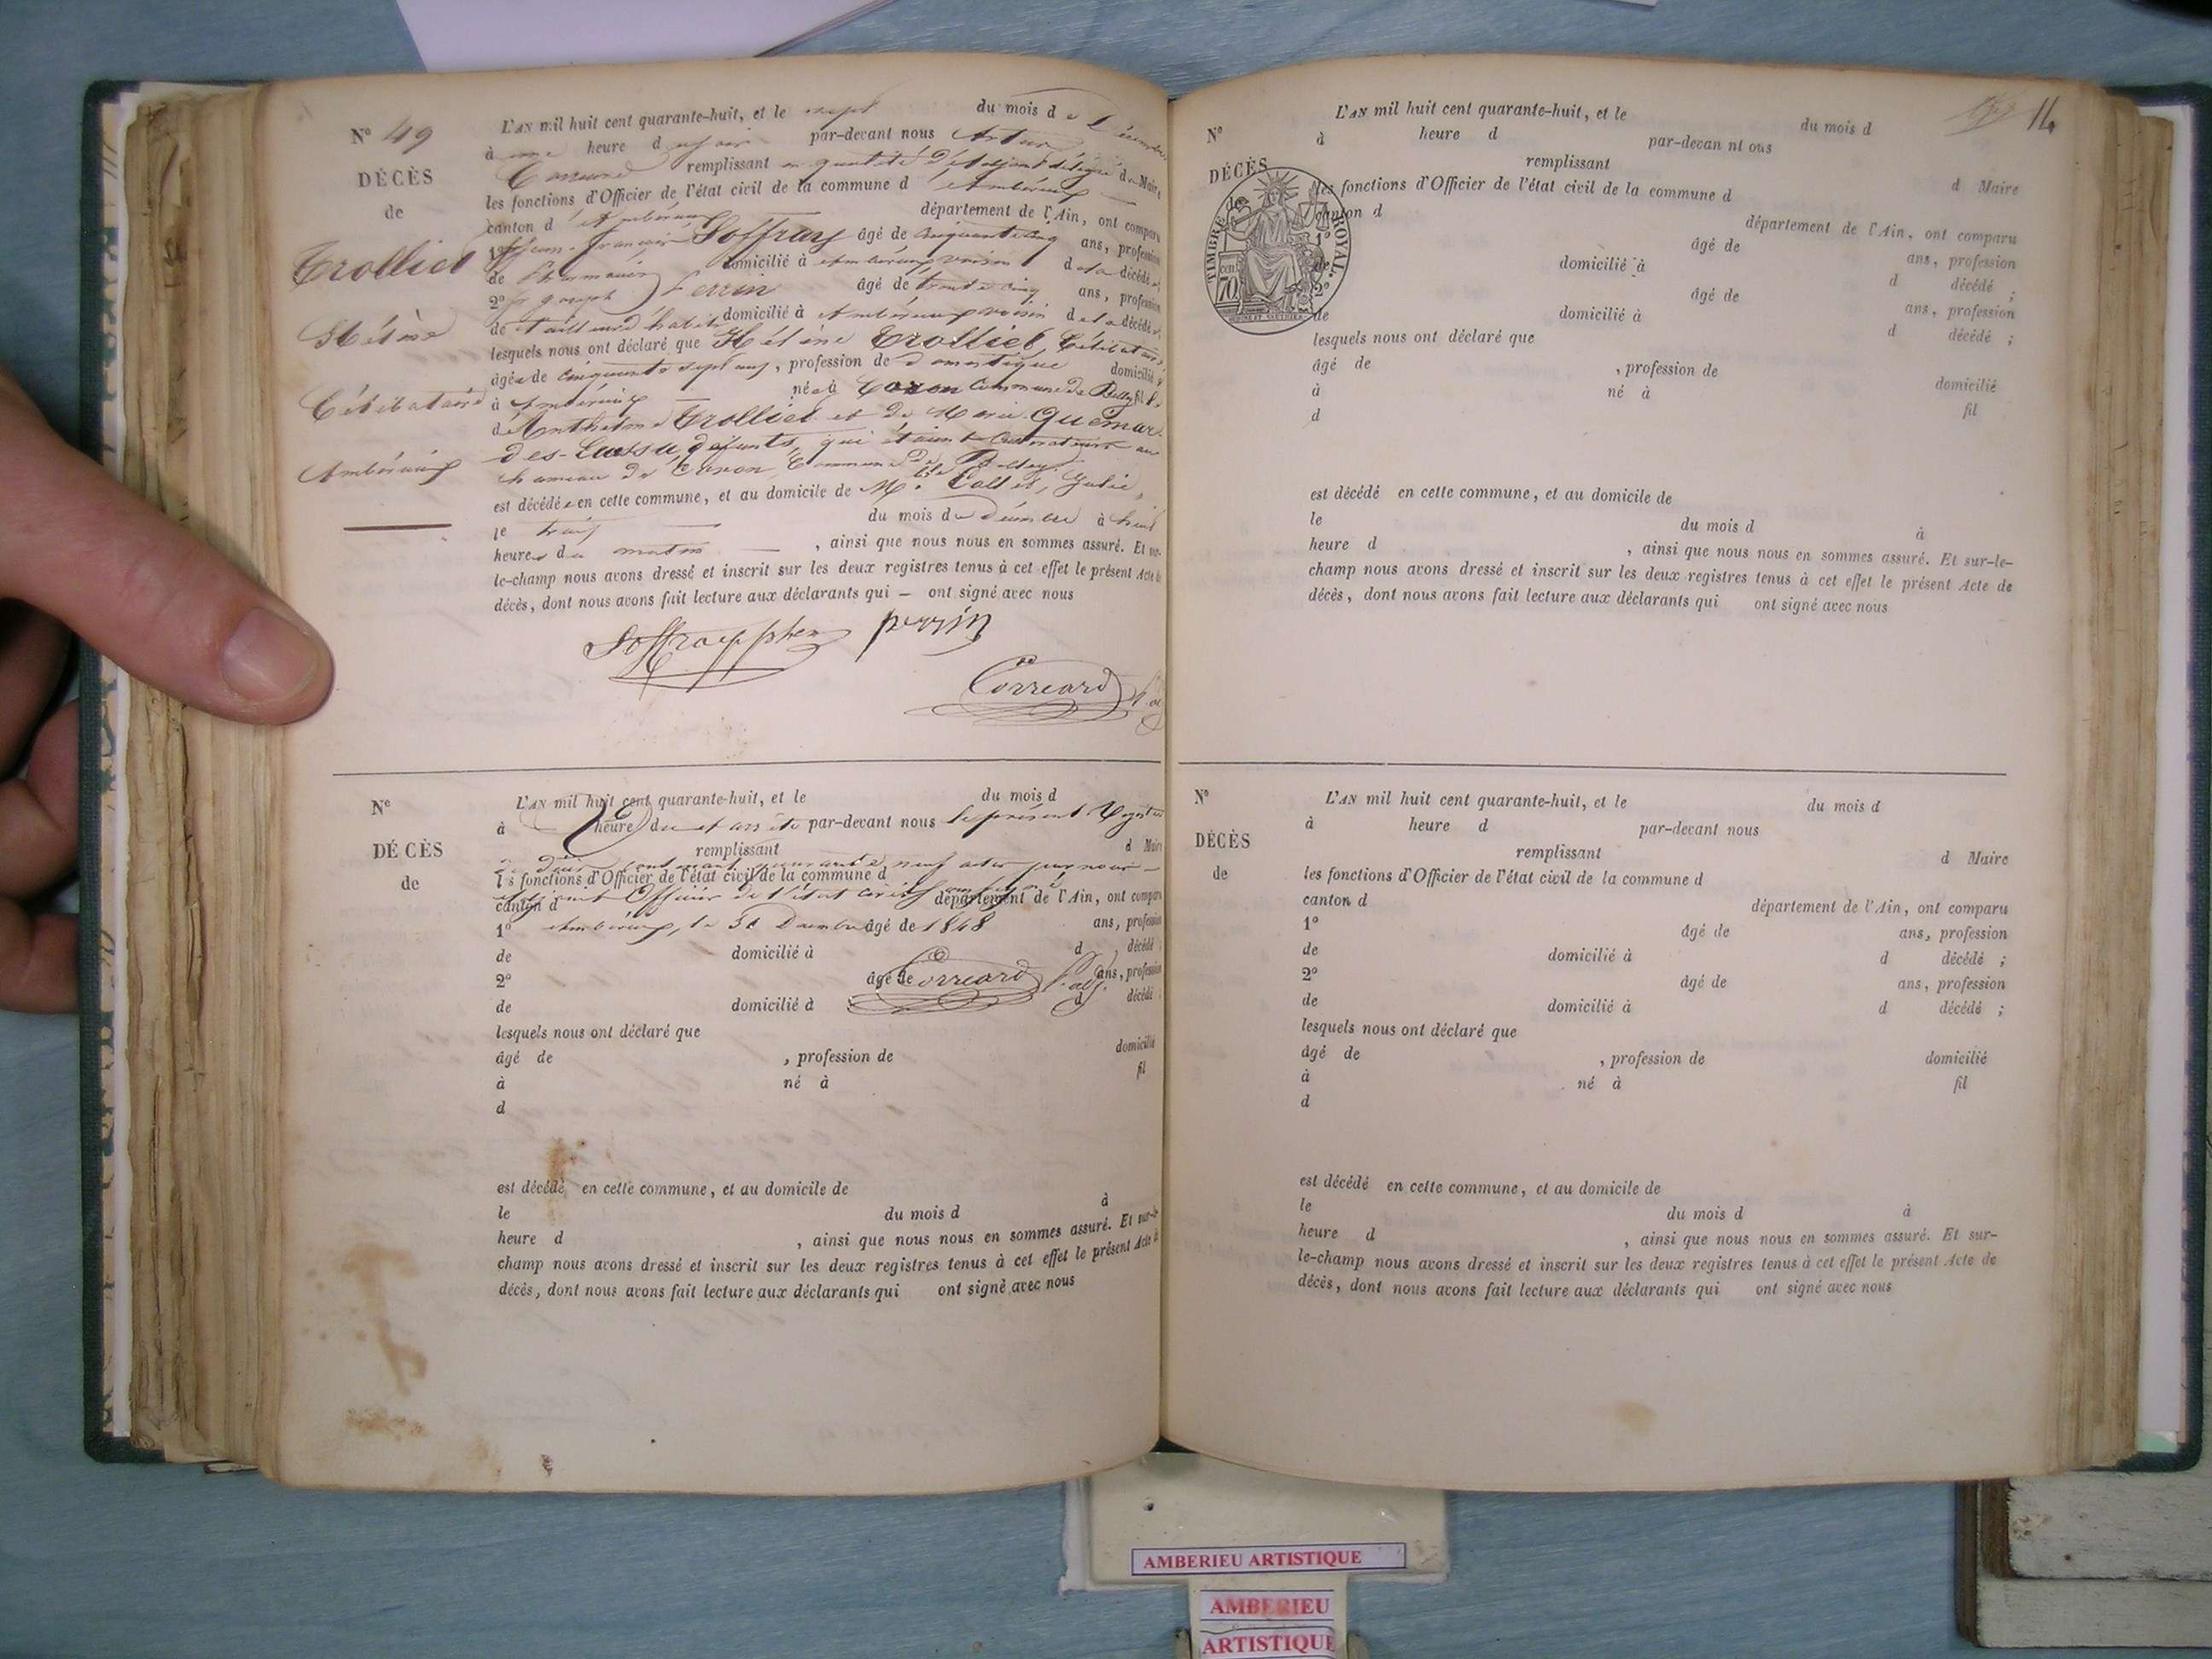 N° 49
DÉCÈS
de
Trolliet
Hélène
Célibataire
Ambérieux
L'AN mil huit cent quarante-huit, et le sept du mois de Décembre
à une heure du soir par-devant nous Artus
Correard remplissant en qualité d'adjoint délégué du Maire
les fonctions d'Officier de l'état civil de la commune d'Ambérieux
canton d'Ambérieux département de l'Ain, ont comparu
1° Jean-françois Soffray âgé de cinquante cinq ans, profession
de Pharmacien domicilié à Ambérieux, voisin de la décédée
2° joseph Perrin âgé de trente cinq ans, profession
de tailleur d'habits domicilié à Ambérieux voisin de la décédée
lesquels nous ont déclaré que Hélène Trolliet, Célibataire
âgée de cinquante sept ans, profession de domestique domiciliée
à Ambérieux née à Coron Commune de Belley fille
d'Anthelme Trolliet et de Marie Quémar
des-Lussu, défunts, qui étaient Cultivateurs au
hameau de Coron, Commune de Belley
est décédée en cette commune, et au domicile de Julie,
le trois du mois de Décembre à huit
heures du matin, ainsi que nous nous en sommes assuré. Et sur-
le-champ nous avons dressé et inscrit sur les deux registres tenus à cet effet le présent Acte de
décès, dont nous avons fait lecture aux déclarants qui — ont signé avec nous
Soffray phen perrin
Correard
N°
DÉCÈS
de
L'AN mil huit cent quarante-huit, et le du mois d
à heure d par-devant nous
Clos et arrêté le présent Registre
remplissant d Maire
de Décès contenant quarante neuf actes par nous
les fonctions d'Officier de l'état civil de la commune d
adjoint Officier de l'état civil
canton d département de l'Ain, ont comparu
1° âgé de ans, profession
Ambérieux, le 31 Décembre 1848
de domicilié à d décédé
2° âgé de ans, profession
Correard adj.
de domicilié à d décédé
lesquels nous ont déclaré que
âgé de , profession de domicilié
à né à fil
d
est décédé en cette commune, et au domicile de
le du mois d à
heure d , ainsi que nous nous en sommes assuré. Et sur-le-
champ nous avons dressé et inscrit sur les deux registres tenus à cet effet le présent Acte de
décès, dont nous avons fait lecture aux déclarants qui ont signé avec nous
14
N°
DÉCÈS
de
TIMBRE ROYAL
70
L'AN mil huit cent quarante-huit, et le du mois d
à heure d par-devan nt ous
remplissant d Maire
les fonctions d'Officier de l'état civil de la commune d
canton d département de l'Ain, ont comparu
1° âgé de ans, profession
de domicilié à d décédé ;
2° âgé de ans, profession
de domicilié à d décédé ;
lesquels nous ont déclaré que
âgé de , profession de domicilié
à né à fil
d
est décédé en cette commune, et au domicile de
le du mois d à
heure d , ainsi que nous nous en sommes assuré. Et sur-le-
champ nous avons dressé et inscrit sur les deux registres tenus à cet effet le présent Acte de
décès, dont nous avons fait lecture aux déclarants qui ont signé avec nous
N°
DÉCÈS
de
L'AN mil huit cent quarante-huit, et le du mois d
à heure d par-devant nous
remplissant d Maire
les fonctions d'Officier de l'état civil de la commune d
canton d département de l'Ain, ont comparu
1° âgé de ans, profession
de domicilié à d décédé ;
2° âgé de ans, profession
de domicilié à d décédé ;
lesquels nous ont déclaré que
âgé de , profession de domicilié
à né à fil
d
est décédé en cette commune, et au domicile de
le du mois d à
heure d , ainsi que nous nous en sommes assuré. Et sur-
le-champ nous avons dressé et inscrit sur les deux registres tenus à cet effet le présent Acte de
décès, dont nous avons fait lecture aux déclarants qui ont signé avec nous
AMBERIEU ARTISTIQUE
AMBERIEU
ARTISTIQUE